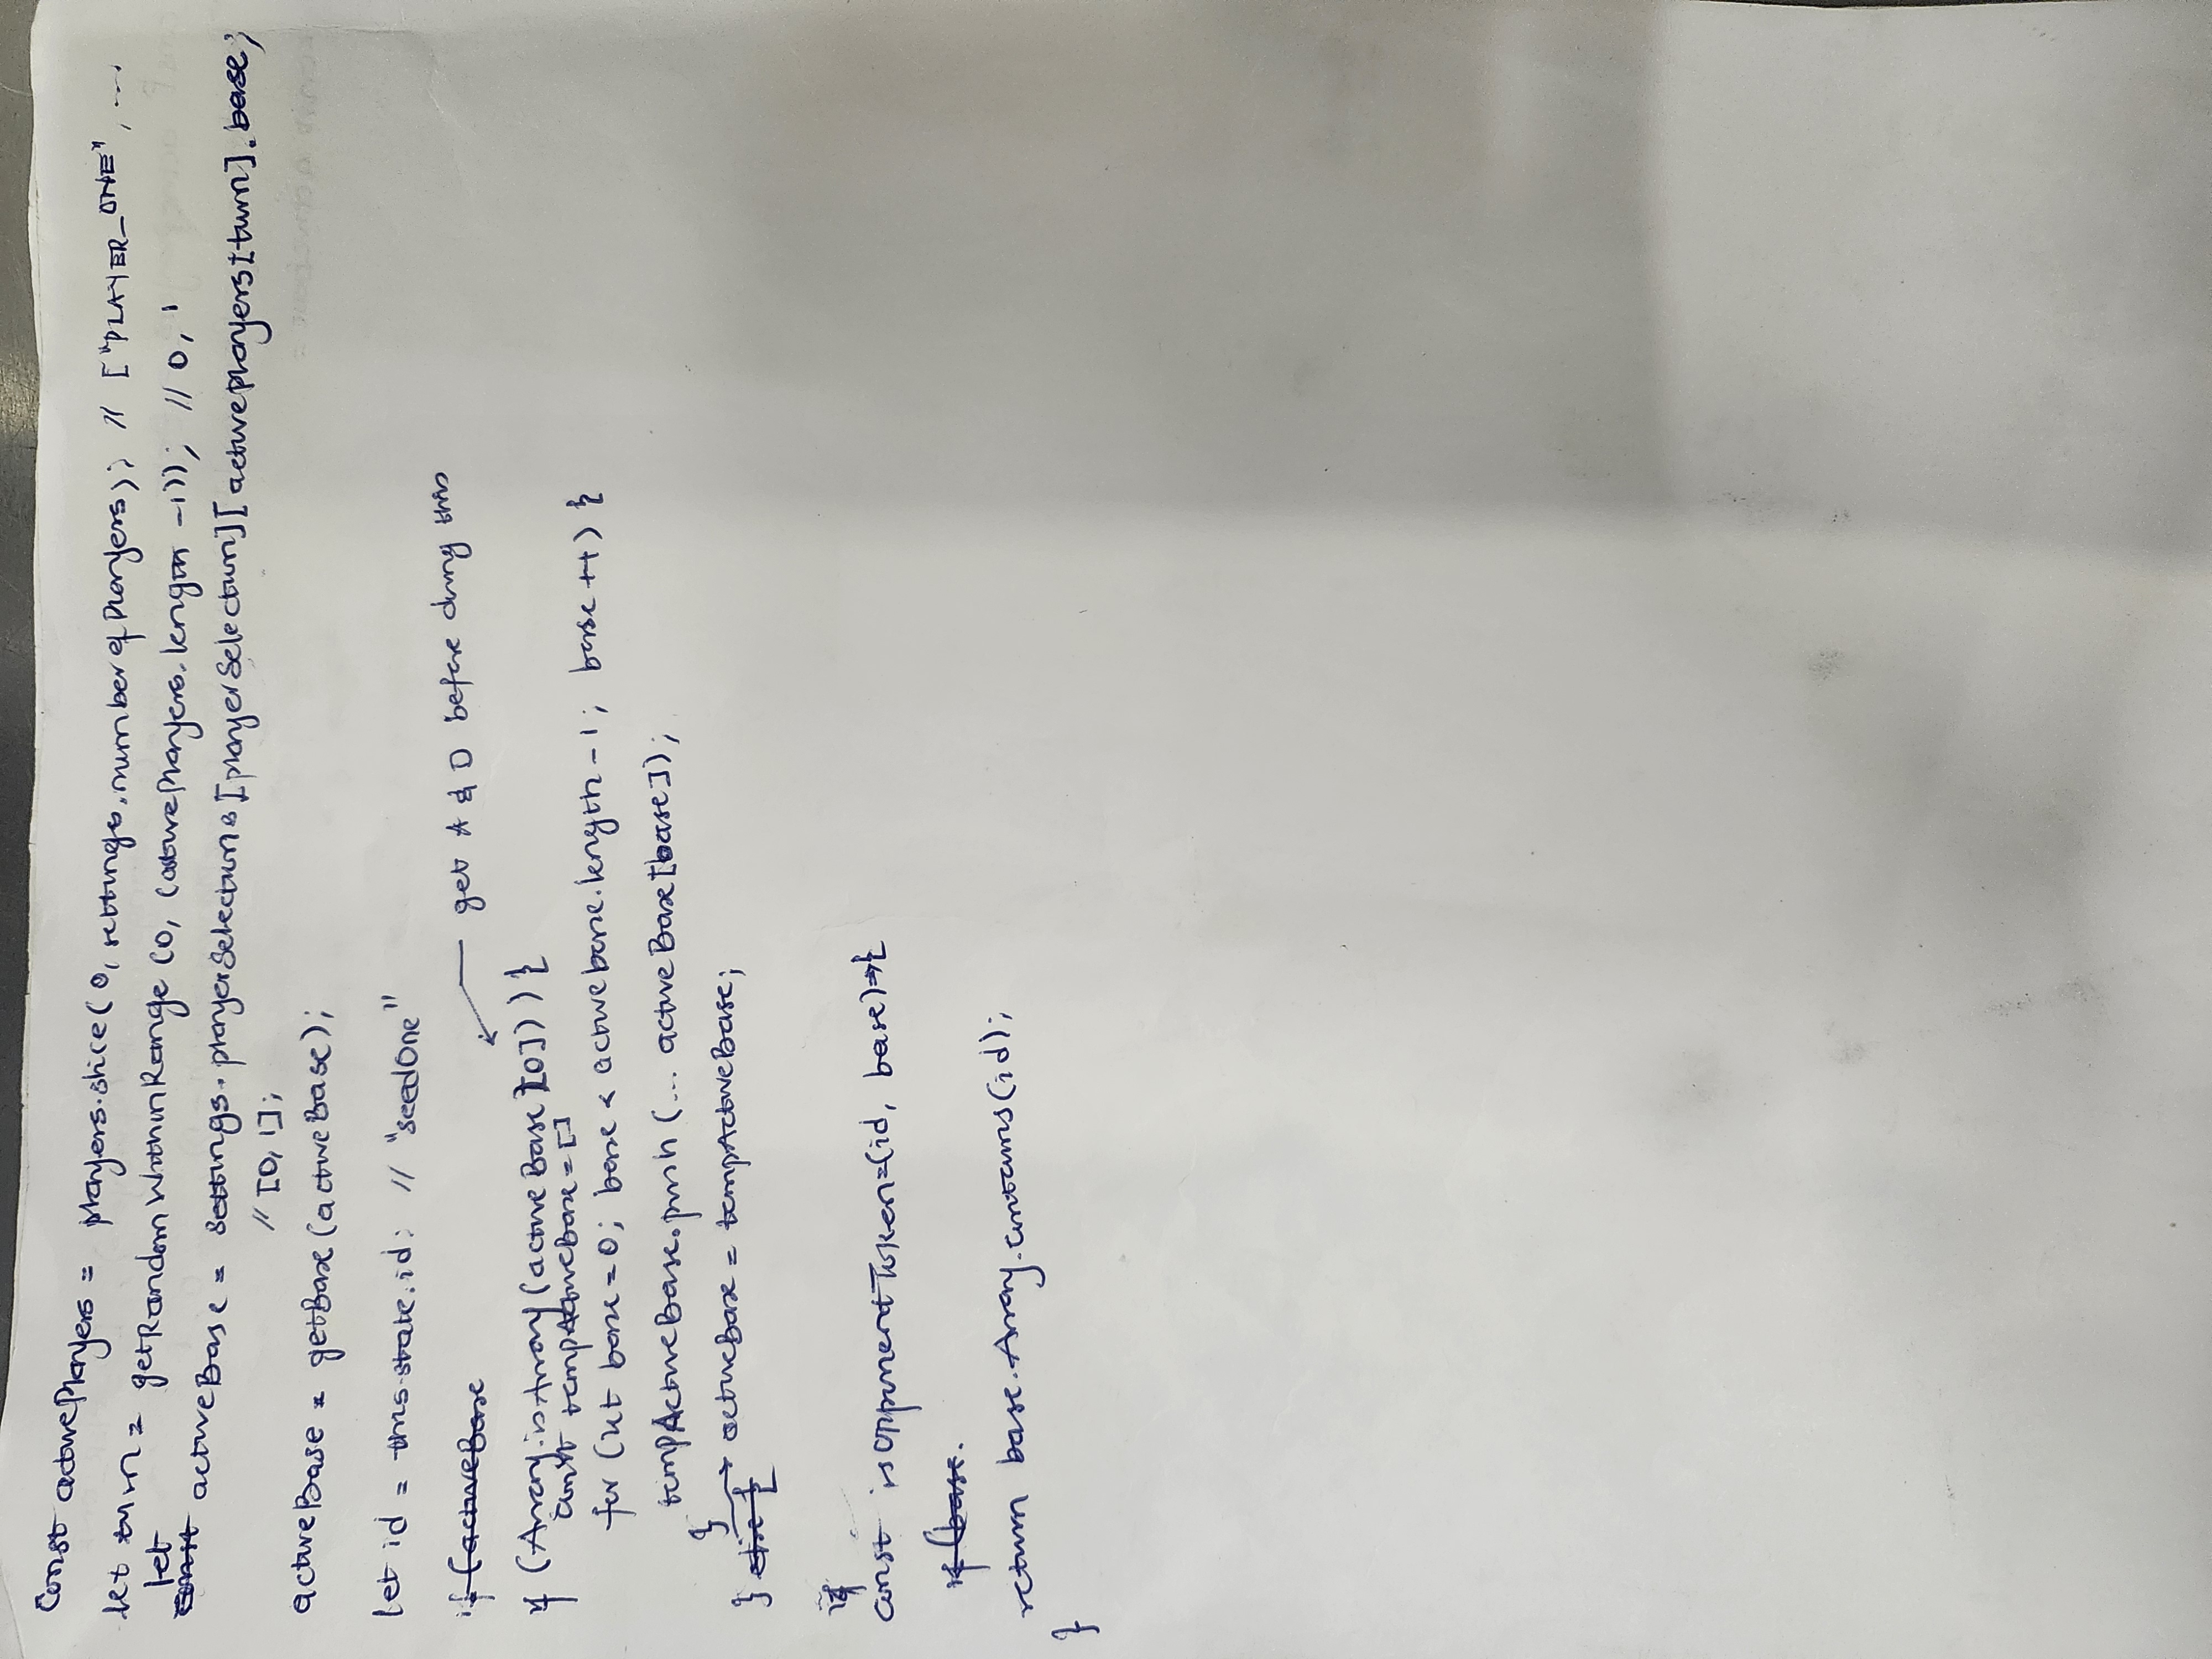 Const activePlayers = players.slice(0, settings.numberofPlayers); // ["PLAYER_ONE", ...
let turn = getRandomWithinRange (0, (activePlayers.length -1)); // 0, 1
let
const activeBase = settings.playerSelections[playerSelection][activeplayers[turn].base;
// [0, 1];
activeBase = getBase(activeBase);
let id = this.state.id; // "seedOne"
if (activeBase
get A & D before doing this
if (Array.isArray(activeBase[0])) {
const tempActiveBase = []
for (let base = 0; base < activebase.length - 1; base ++) {
tempActiveBase.push(... activeBase[base]);
}
activeBase = tempActiveBase;
} else {
if
const isOpponentToken=(id, base)=>{
if (base.
return base.Array.contains(id);
}